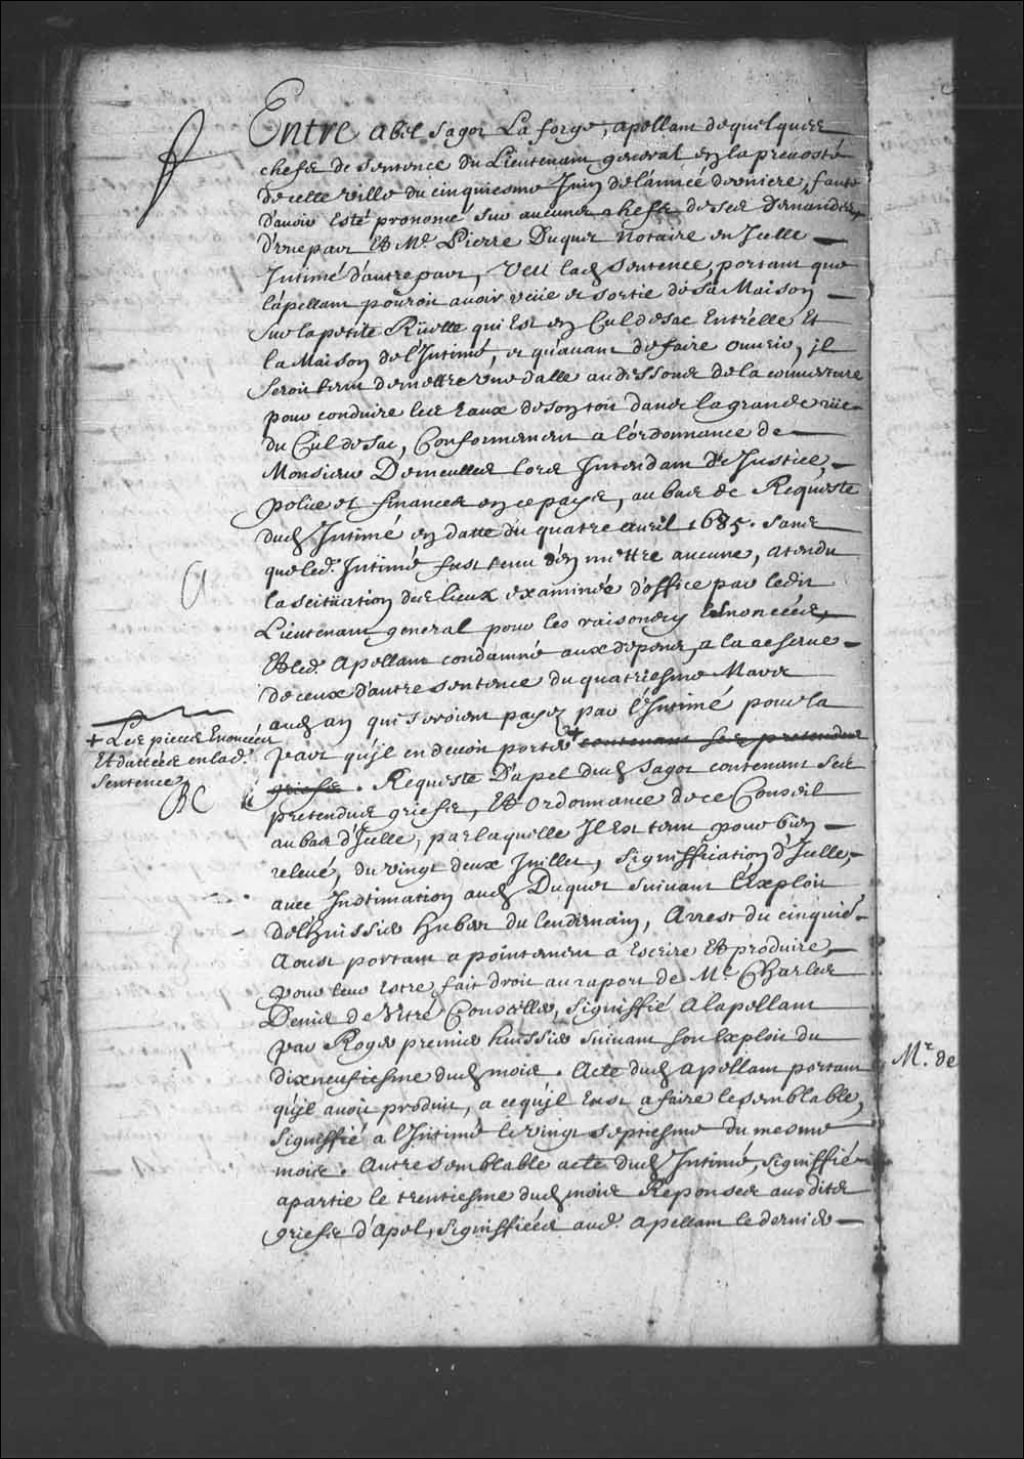 Entre abel sagot La forge, apellant de quelques
chefs de sentence du Lieutenant general en la prevosté
de cette ville du cinquiesme Juin de l'année derniere, faute
d'avoir Esté prononcé sur aucuns chefs de ses demandes,
d'une part Et Me. Pierre Duquet Notaire en Icelle —
Intimé d'autre part, Veu lad. sentence, portant que
l'apellant pouroit avoir veüe et sortie de sa Maison —
sur la petite Rüelle qui Est en Cul de sac Entr'elle Et
la Maison de l'Intimé, et qu'avant de faire ouvrir, il
seroit tenu de mettre une dalle au dessous de la couverture
pour conduire les Eaux de son toit dans la grande rüe
du Cul de sac, Conformement a l'ordonnance de —
Monsieur Demeulles lors Intendant de Justice, —
police et finances en ce pays, au bas de Requeste
dud. Intimé en datte du quatre avril 1685. sans
que led. Intimé fust tenu d'en mettre aucune, atendu
la scitüation des lieux examinée d'office par ledit
Lieutenant general pour les raisons y Enoncées,
Et led. Apellant condamné aux depens, a la reserve —
de ceux d'autre sentence du quatriesme Mars
aud. an qui seroient payez par l'Intimé pour la
part qu'il en devoit porter + contenant ses pretendus
griefs. Requeste d'apel dud. Sagot contenant ses
pretendus griefs, Et ordonnance de ce Conseil
au bas d'Icelle, par laquelle Il Est tenu pour bien —
relevé, du vingt deux Juillet, signiffication d'Icelle, —
avec Inthimation aud. Duquet suivant l'Exploit
de l'huissier hubert du lendemain, Arrest du cinquie. —
Aoust portant apointement a Escrire Et produire, —
pour leur Estre fait droit au raport de Me. Charles
Denis de Vitré Conseiller, signiffié a lapellant
par Roger premier huissier suivant son Exploit du
dix neufiesme dud. mois. Acte dud. apellant portant
qu'il avoit produit, a ce qu'il Eust a faire le semblable,
signiffié a l'Intimé le vingt septiesme du mesme
mois. Autre semblable acte dud. Intimé, signiffié
a partie le trentiesme dud. mois Reponses auxdits
griefs d'apel, signiffiées aud. apellant le dernier —
+ Les pieces Enoncées
Et dattées en lad.
sentence
Mr. de